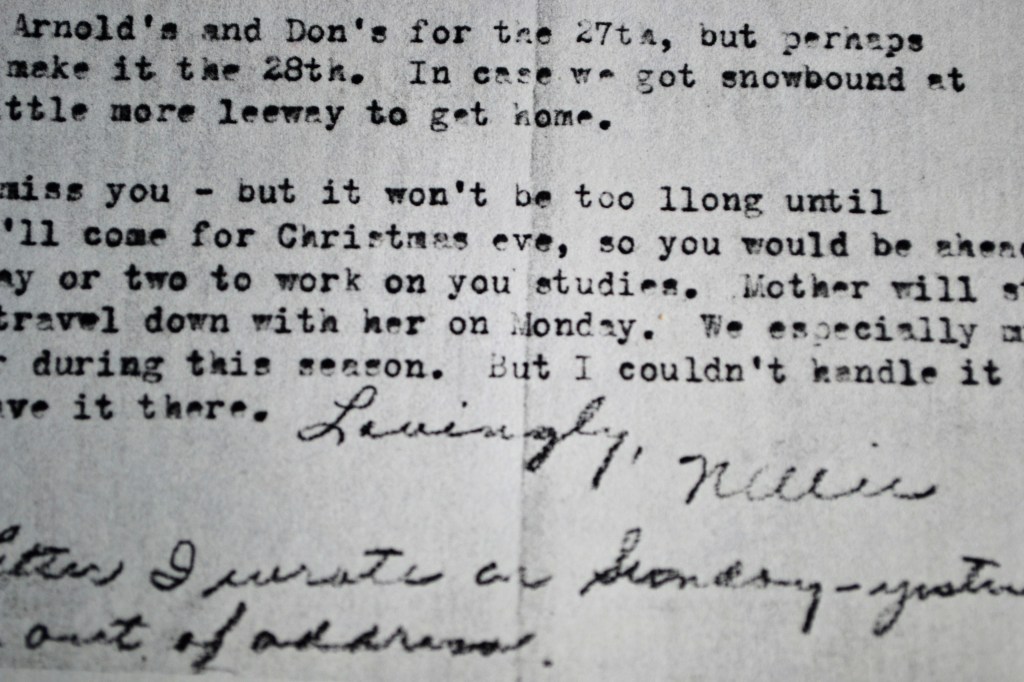 Arnold's and Don's for the 27th, but perhaps
make it the 28th. In case we got snowbound at
ttle more leeway to get home.
miss you - but it won't be too llong until
'll come for Christmas eve, so you would be ahead
ay or two to work on you studies. Mother will st
travel down with her on Monday. We especially m
r during this season. But I couldn't handle it
ave it there.
Lovingly,
Nellie
etter I wrote on Sunday-yester
out of address.